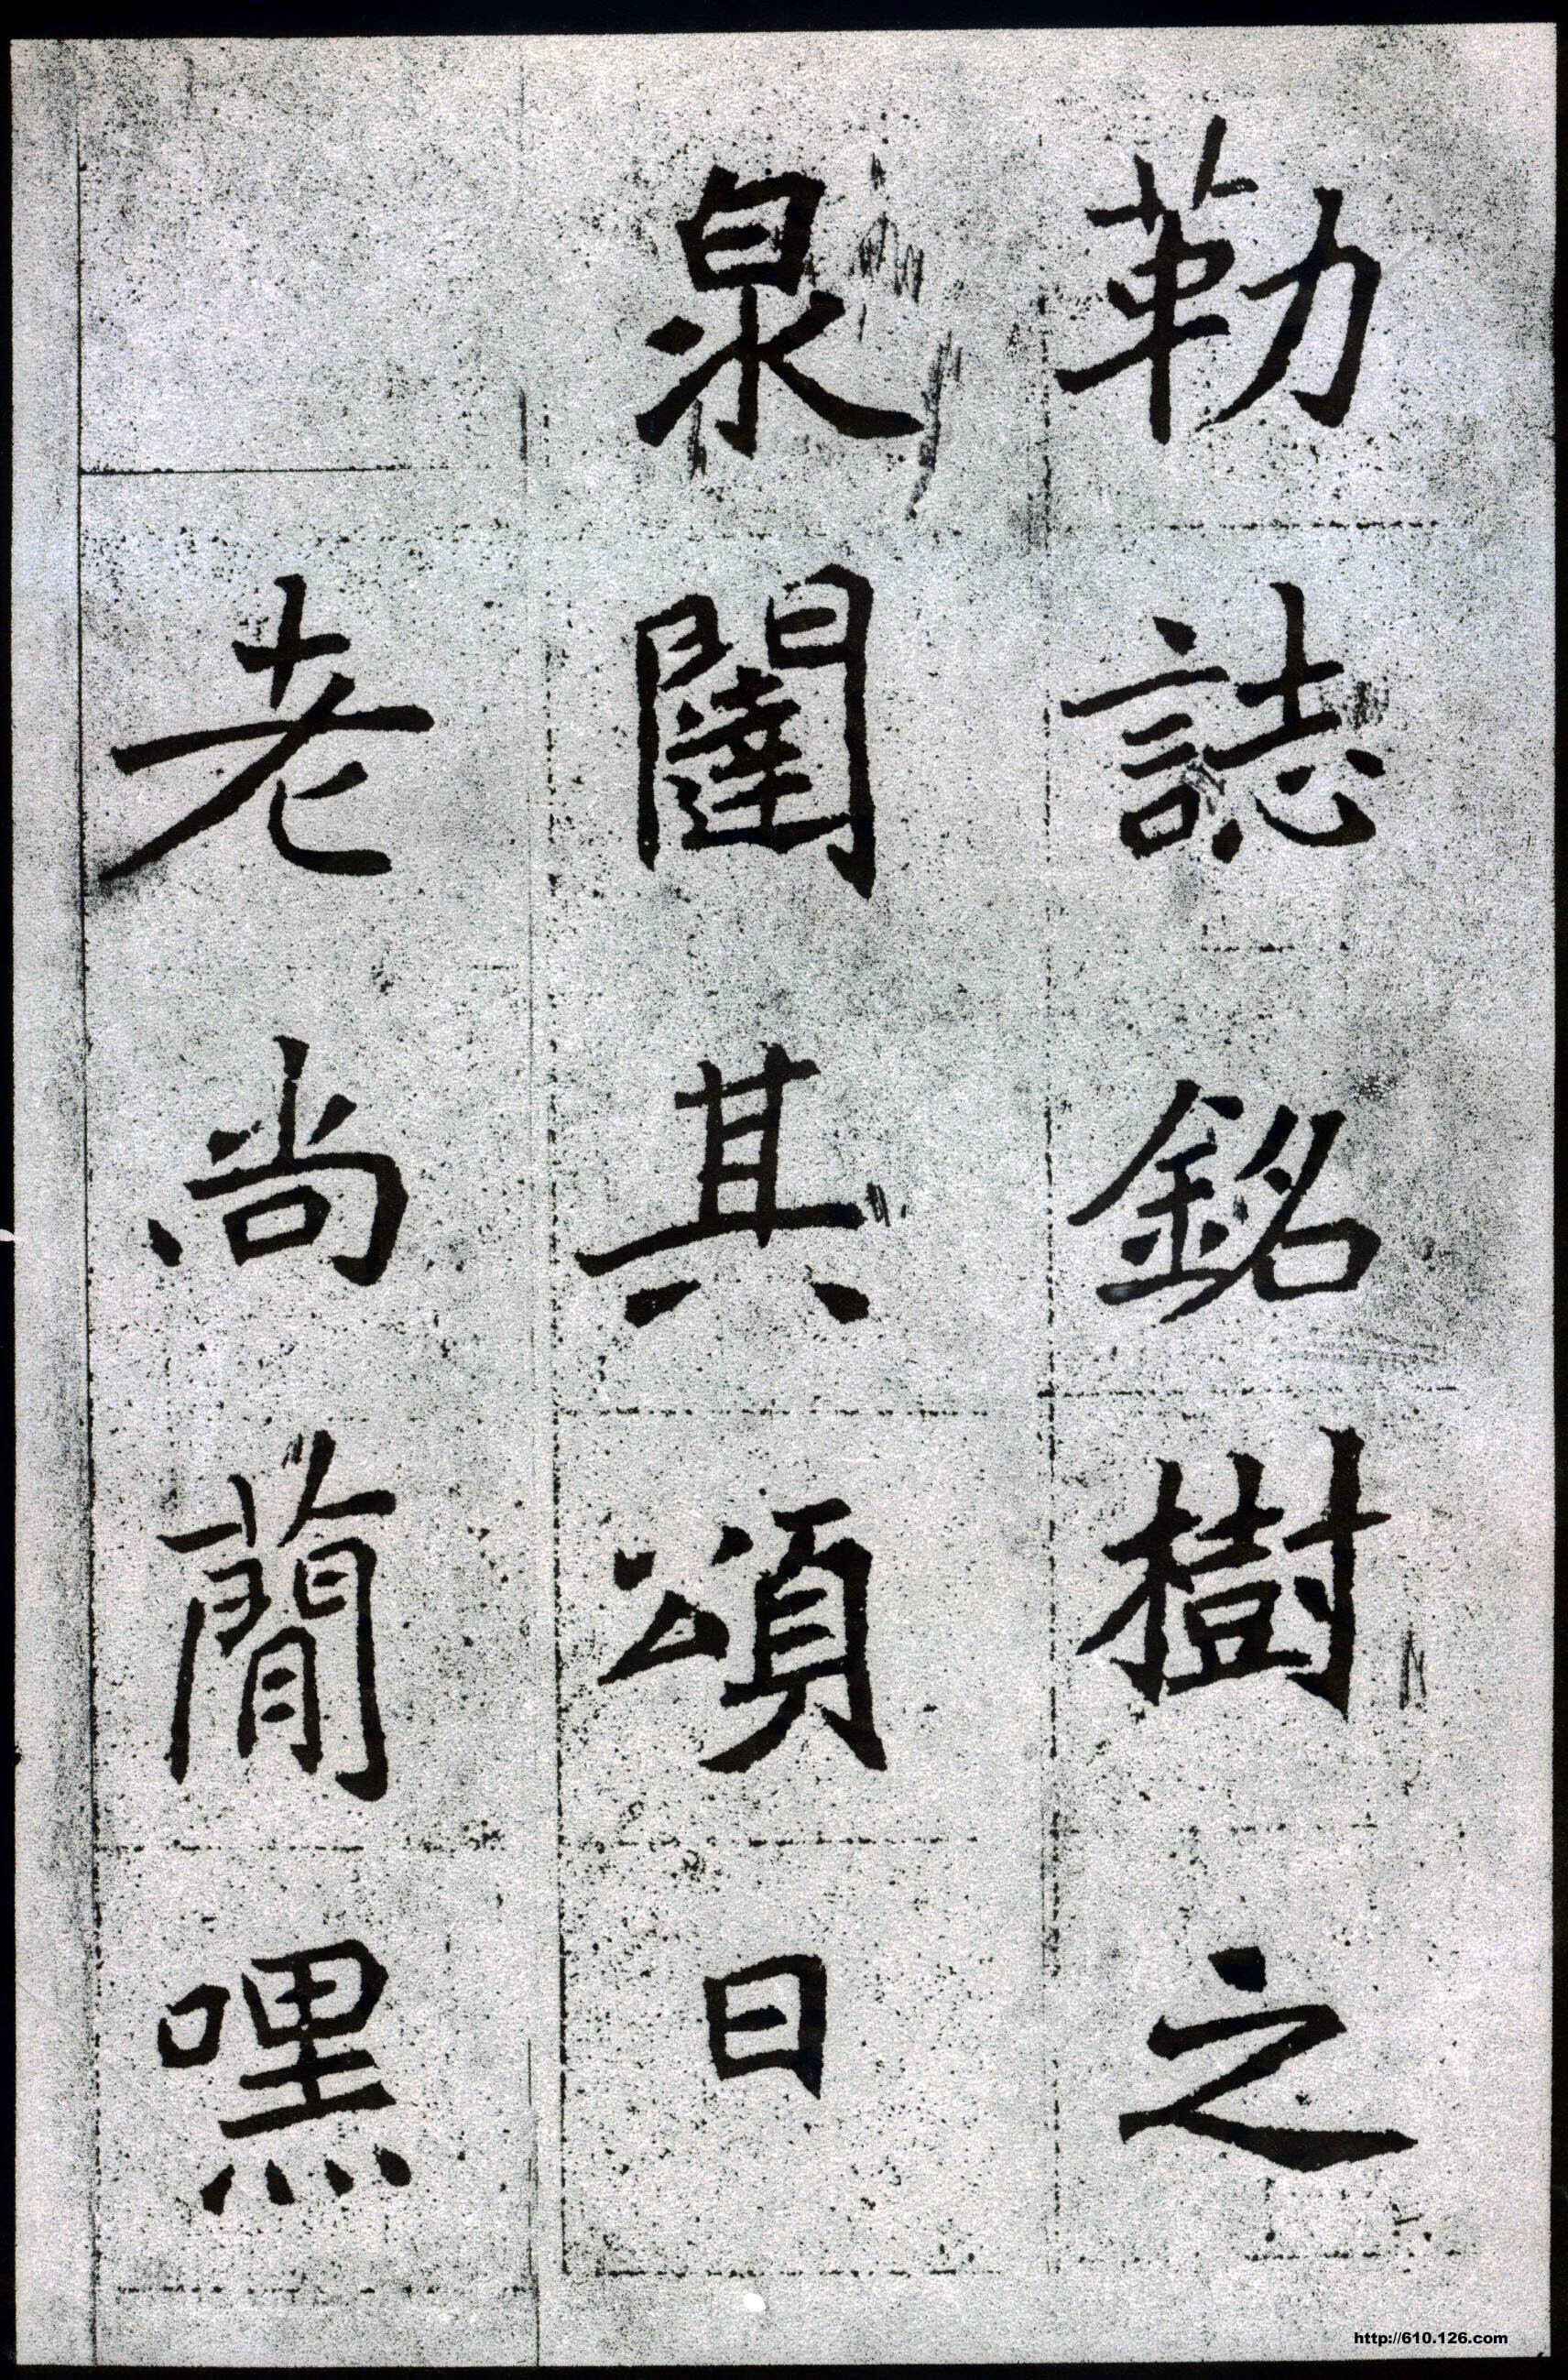 勒誌銘樹之
泉闥其頌曰
老尚簡嘿
http://610.126.com